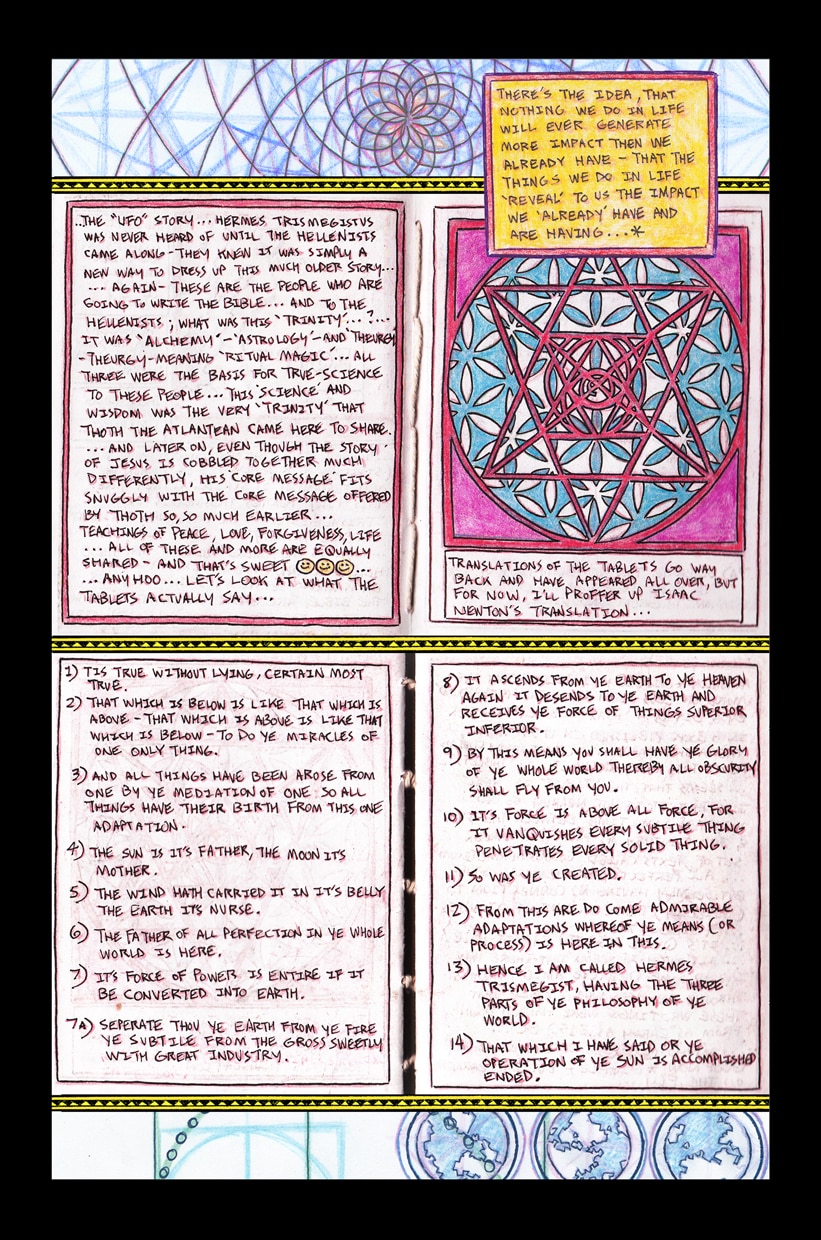 THERE'S THE IDEA, THAT
NOTHING WE DO IN LIFE
WILL EVER GENERATE
MORE IMPACT THEN WE
ALREADY HAVE - THAT THE
THINGS WE DO IN LIFE
'REVEAL' TO US THE IMPACT
WE 'ALREADY' HAVE AND
ARE HAVING...*
..THE "UFO" STORY... HERMES TRISMEGISTUS
WAS NEVER HEARD OF UNTIL THE HELLENISTS
CAME ALONG - THEY KNEW IT WAS SIMPLY A
NEW WAY TO DRESS UP THIS MUCH OLDER STORY...
... AGAIN - THESE ARE THE PEOPLE WHO ARE
GOING TO WRITE THE BIBLE... AND TO THE
HELLENISTS; WHAT WAS THIS 'TRINITY'...?...
IT WAS 'ALCHEMY' - 'ASTROLOGY' - AND 'THEURGY'
- THEURGY - MEANING 'RITUAL MAGIC'... ALL
THREE WERE THE BASIS FOR TRUE-SCIENCE
TO THESE PEOPLE... THIS 'SCIENCE' AND
WISDOM WAS THE VERY 'TRINITY' THAT
THOTH THE ATLANTEAN CAME HERE TO SHARE.
... AND LATER ON, EVEN THOUGH THE STORY
OF JESUS IS COBBLED TOGETHER MUCH
DIFFERENTLY, HIS 'CORE MESSAGE' FITS
SNUGGLY WITH THE CORE MESSAGE OFFERED
BY THOTH SO, SO MUCH EARLIER...
TEACHINGS OF PEACE, LOVE, FORGIVENESS, LIFE
... ALL OF THESE AND MORE ARE EQUALLY
SHARED - AND THAT'S SWEET 😊😊😊...
... ANY HOO... LET'S LOOK AT WHAT THE
TABLETS ACTUALLY SAY...
TRANSLATIONS OF THE TABLETS GO WAY
BACK AND HAVE APPEARED ALL OVER, BUT
FOR NOW, I'LL PROFFER UP ISAAC
NEWTON'S TRANSLATION...
1) TIS TRUE WITHOUT LYING, CERTAIN MOST
TRUE.
2) THAT WHICH IS BELOW IS LIKE THAT WHICH IS
ABOVE - THAT WHICH IS ABOVE IS LIKE THAT
WHICH IS BELOW - TO DO YE MIRACLES OF
ONE ONLY THING.
3) AND ALL THINGS HAVE BEEN AROSE FROM
ONE BY YE MEDIATION OF ONE: SO ALL
THINGS HAVE THEIR BIRTH FROM THIS ONE
ADAPTATION.
4) THE SUN IS IT'S FATHER, THE MOON IT'S
MOTHER.
5) THE WIND HATH CARRIED IT IN IT'S BELLY
THE EARTH IT'S NURSE.
6) THE FATHER OF ALL PERFECTION IN YE WHOLE
WORLD IS HERE.
7) IT'S FORCE OF POWER IS ENTIRE IF IT
BE CONVERTED INTO EARTH.
7A) SEPERATE THOU YE EARTH FROM YE FIRE
YE SUBTILE FROM THE GROSS SWEETLY
WITH GREAT INDUSTRY.
8) IT ASCENDS FROM YE EARTH TO YE HEAVEN
AGAIN IT DESENDS TO YE EARTH AND
RECEIVES YE FORCE OF THINGS SUPERIOR
INFERIOR.
9) BY THIS MEANS YOU SHALL HAVE YE GLORY
OF YE WHOLE WORLD THEREBY ALL OBSCURITY
SHALL FLY FROM YOU.
10) IT'S FORCE IS ABOVE ALL FORCE, FOR
IT VANQUISHES EVERY SUBTILE THING
PENETRATES EVERY SOLID THING.
11) SO WAS YE CREATED.
12) FROM THIS ARE DO COME ADMIRABLE
ADAPTATIONS WHEREOF YE MEANS (OR
PROCESS) IS HERE IN THIS.
13) HENCE I AM CALLED HERMES
TRISMEGIST, HAVING THE THREE
PARTS OF YE PHILOSOPHY OF YE
WORLD.
14) THAT WHICH I HAVE SAID OR YE
OPERATION OF YE SUN IS ACCOMPLISHED
ENDED.